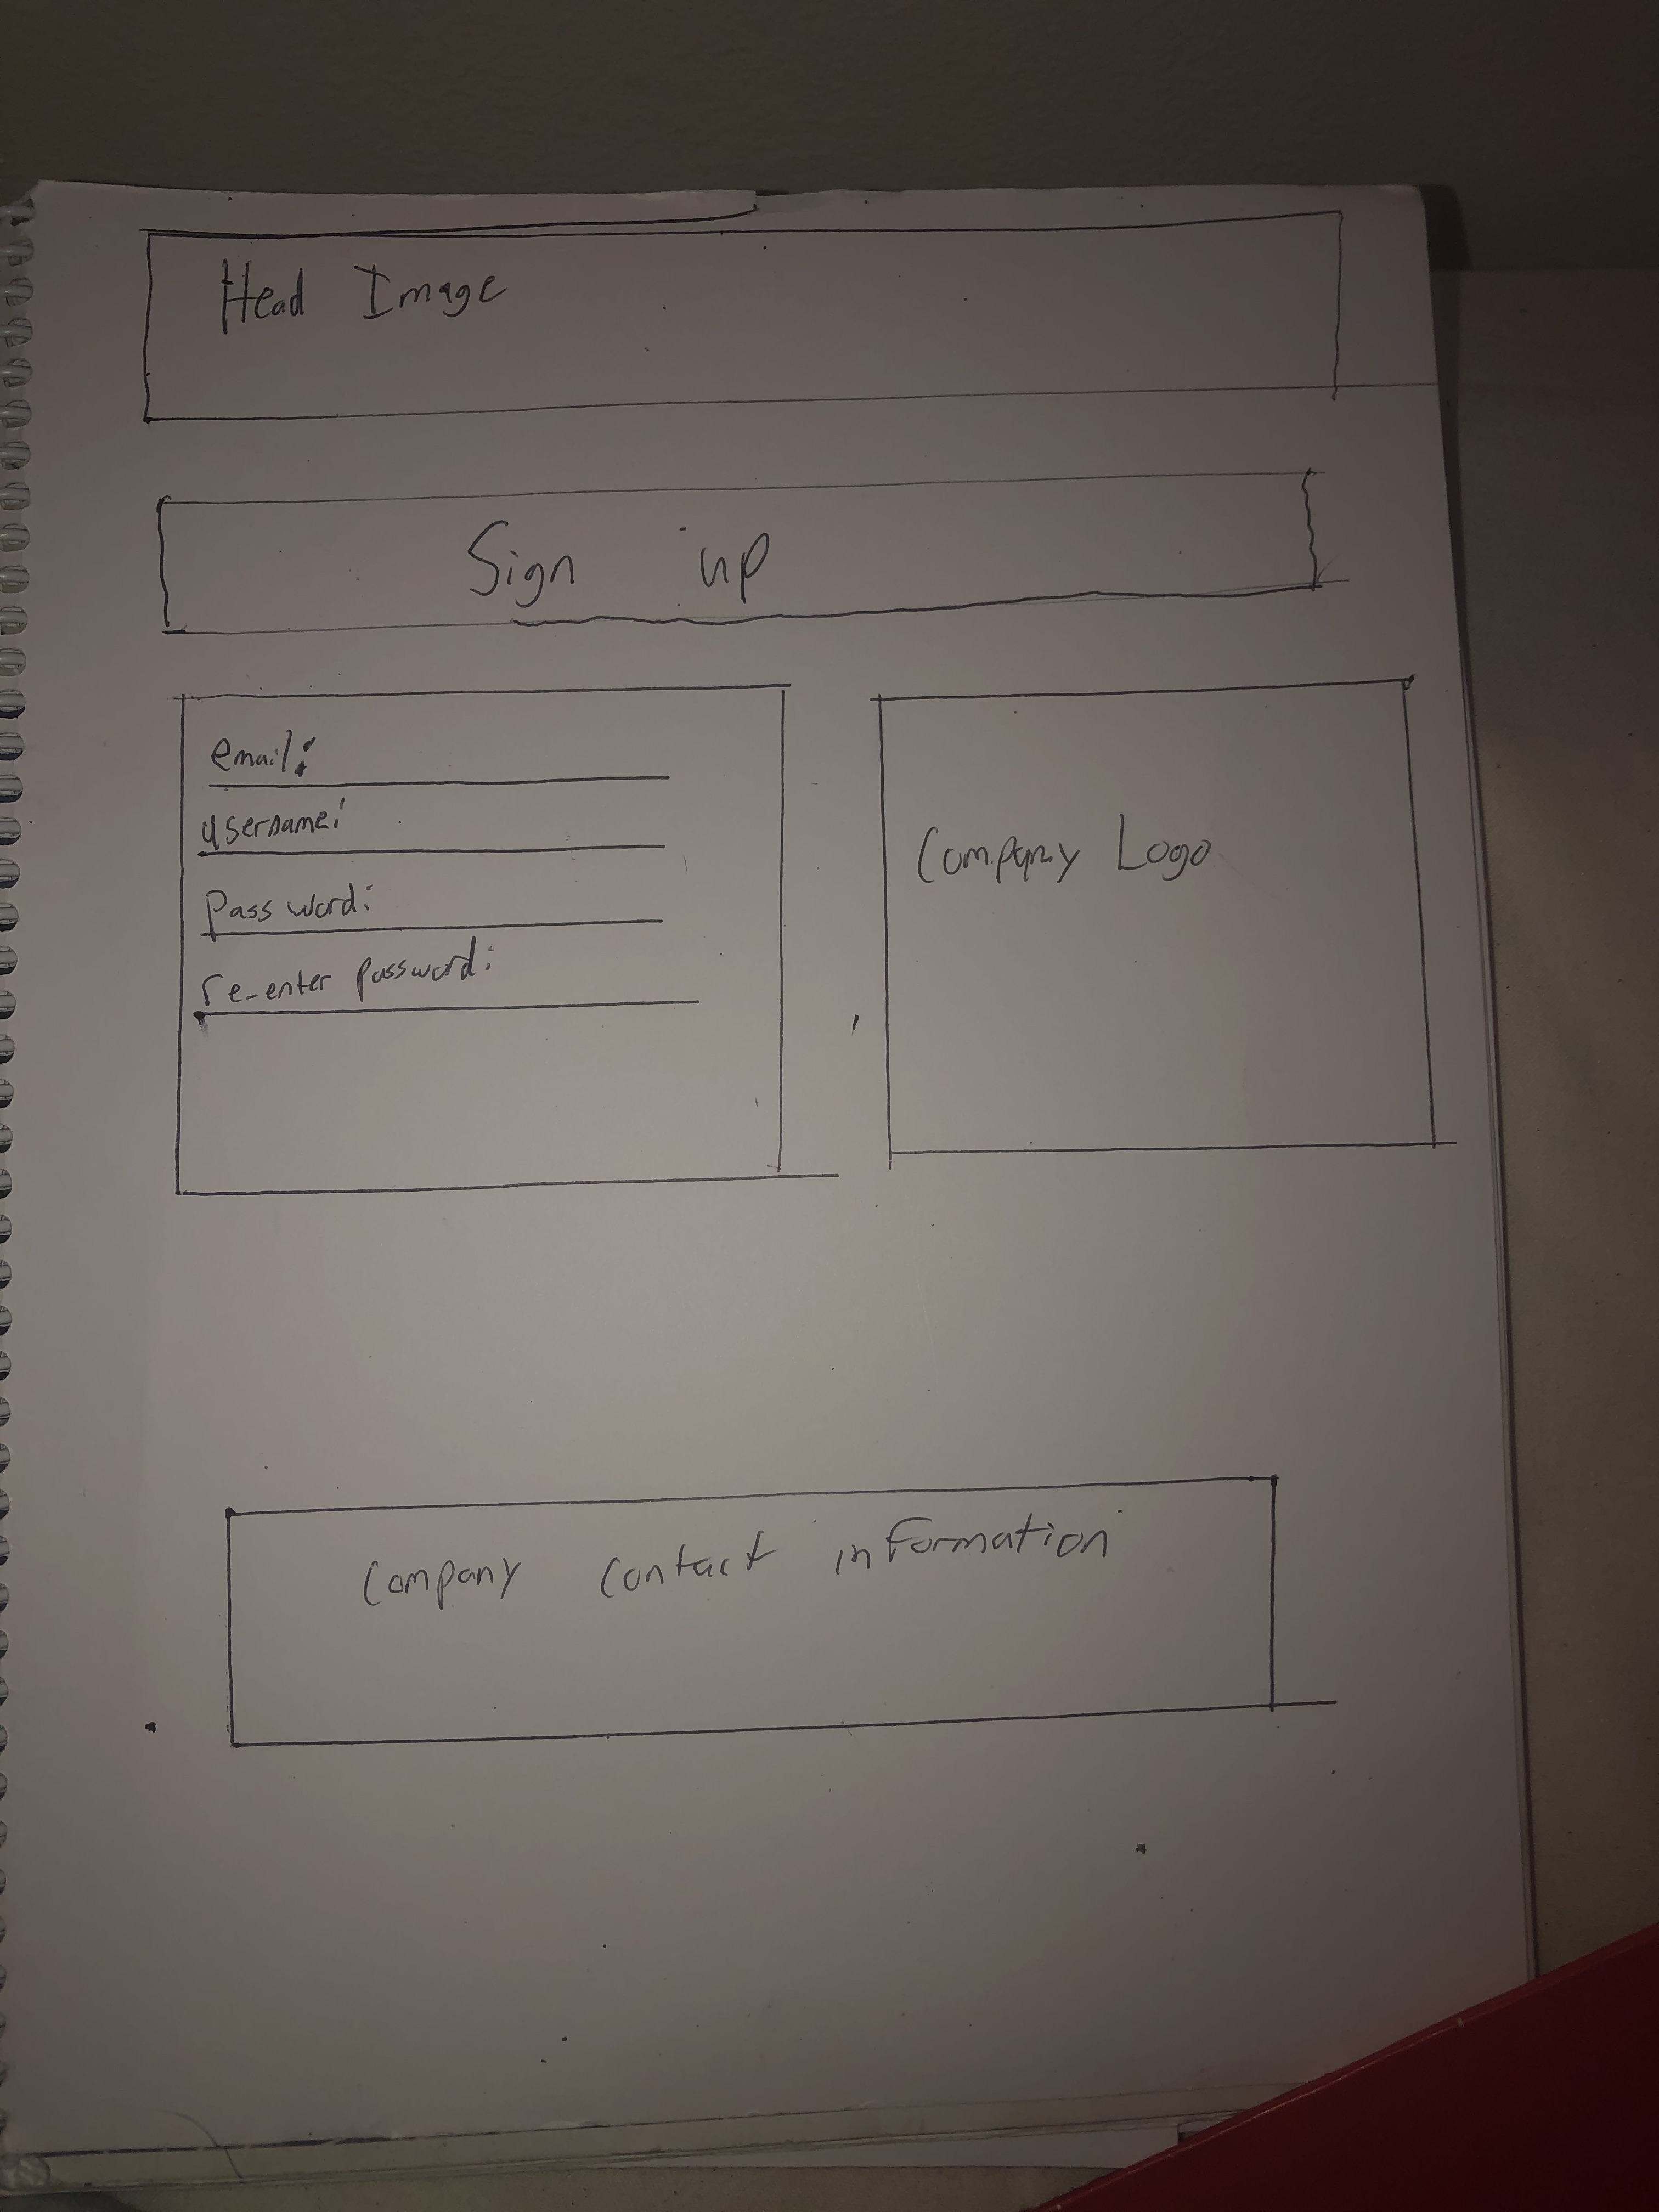 Head Image
Sign up
email:
username:
Password:
re-enter password:
Company Logo
Company contact information